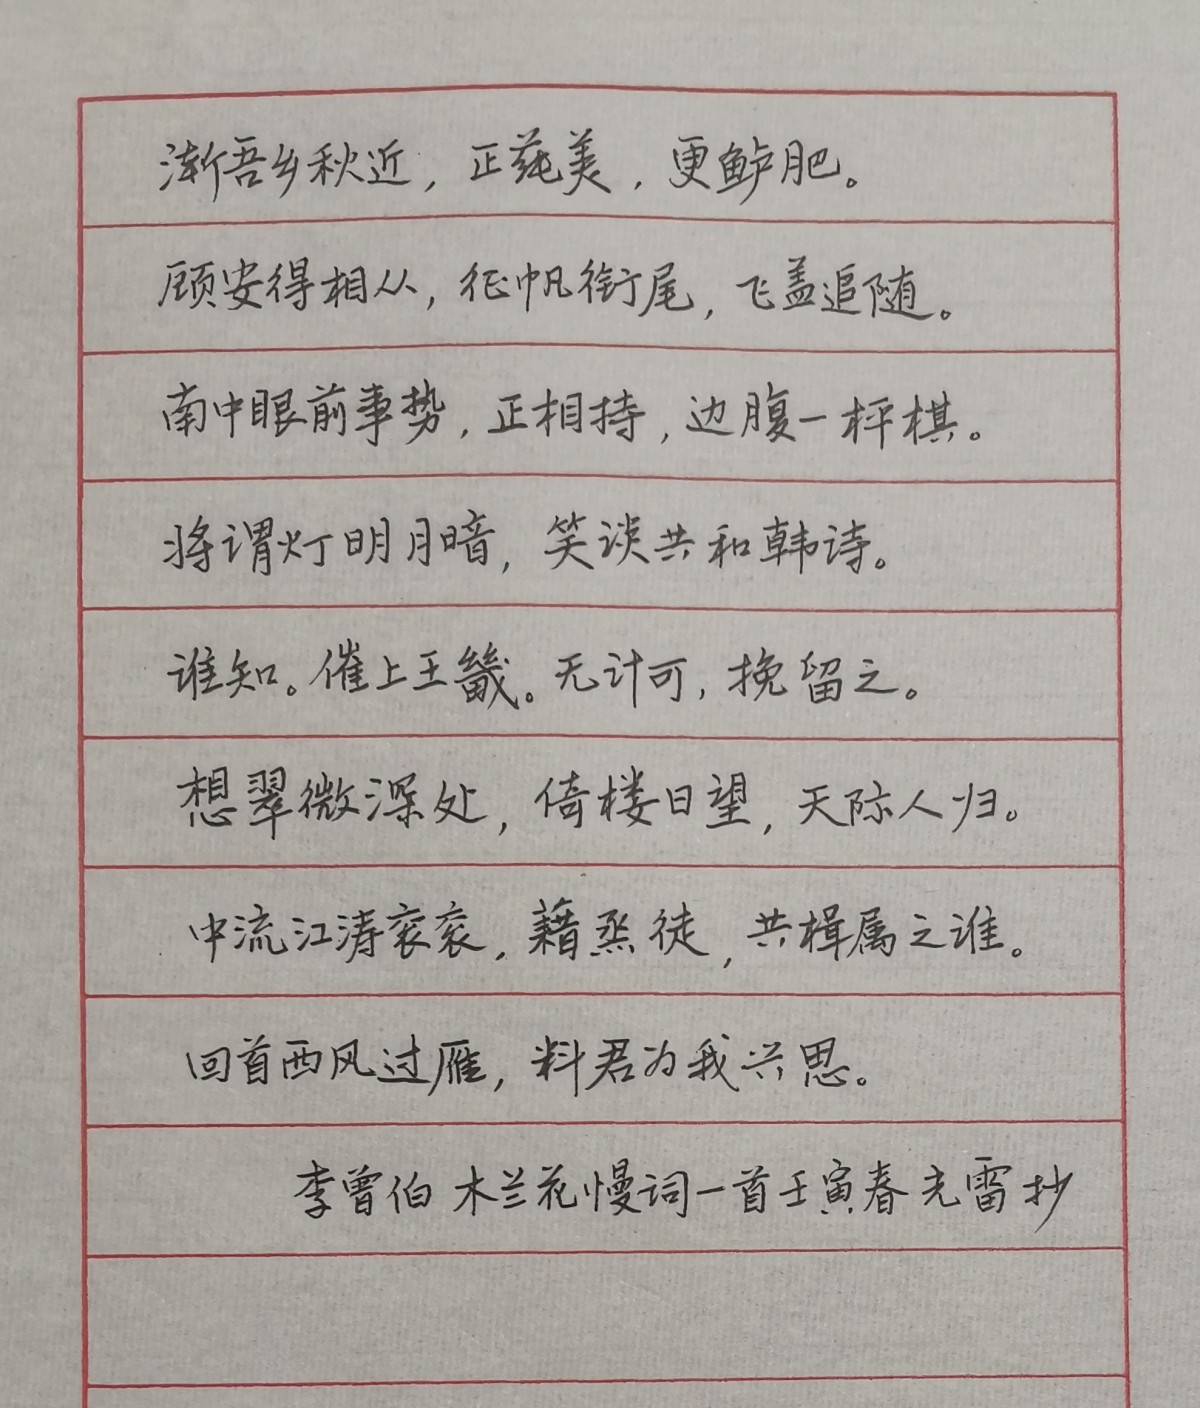 渐吾乡秋近，正莼美，更鲈肥。
顾安得相从，征帆衔尾，飞盖追随。
南中眼前事势，正相持，边腹一枰棋。
将谓灯明月暗，笑谈共和韩诗。
谁知。催上王畿。无计可，挽留之。
想翠微深处，倚楼日望，天际人归。
中流江涛衮衮，藉烝徒，共楫属之谁。
回首西风过雁，料君为我兴思。
李曾伯木兰花慢词一首壬寅春光雷抄